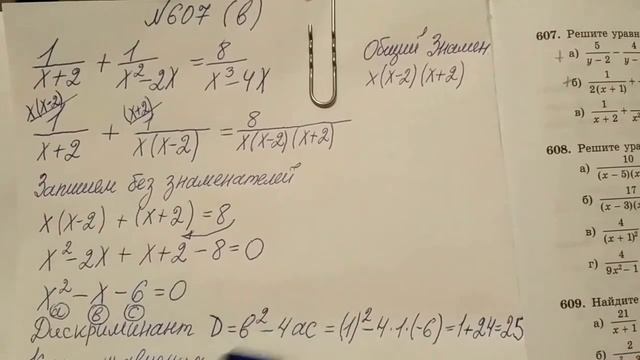 №607 (в)
1/(x+2) + 1/(x²-2x) = 8/(x³-4x)
Общий Знамен
x(x-2)(x+2)
x(x-2) (x+2)
1/(x+2) + 1/(x(x-2)) = 8/(x(x-2)(x+2))
Запишем без знаменателей
x(x-2) + (x+2) = 8
x²-2x + x+2-8=0
x²-x-6=0
a в c
Дискриминант D=в²-4ac=(1)²-4·1·(-6)=1+24=25
607. Решите уравн
а) 5/(y-2) - 4/(y-
б) 1/(2(x+1)) +
в) 1/(x+2) + 1/x²
608. Решите ура
а) 10/(x-5)(x
б) 17/(x-3)(x
в) 4/(x+1)²
г) 4/(9x²-1)
609. Найдите
а) 21/(x+1)